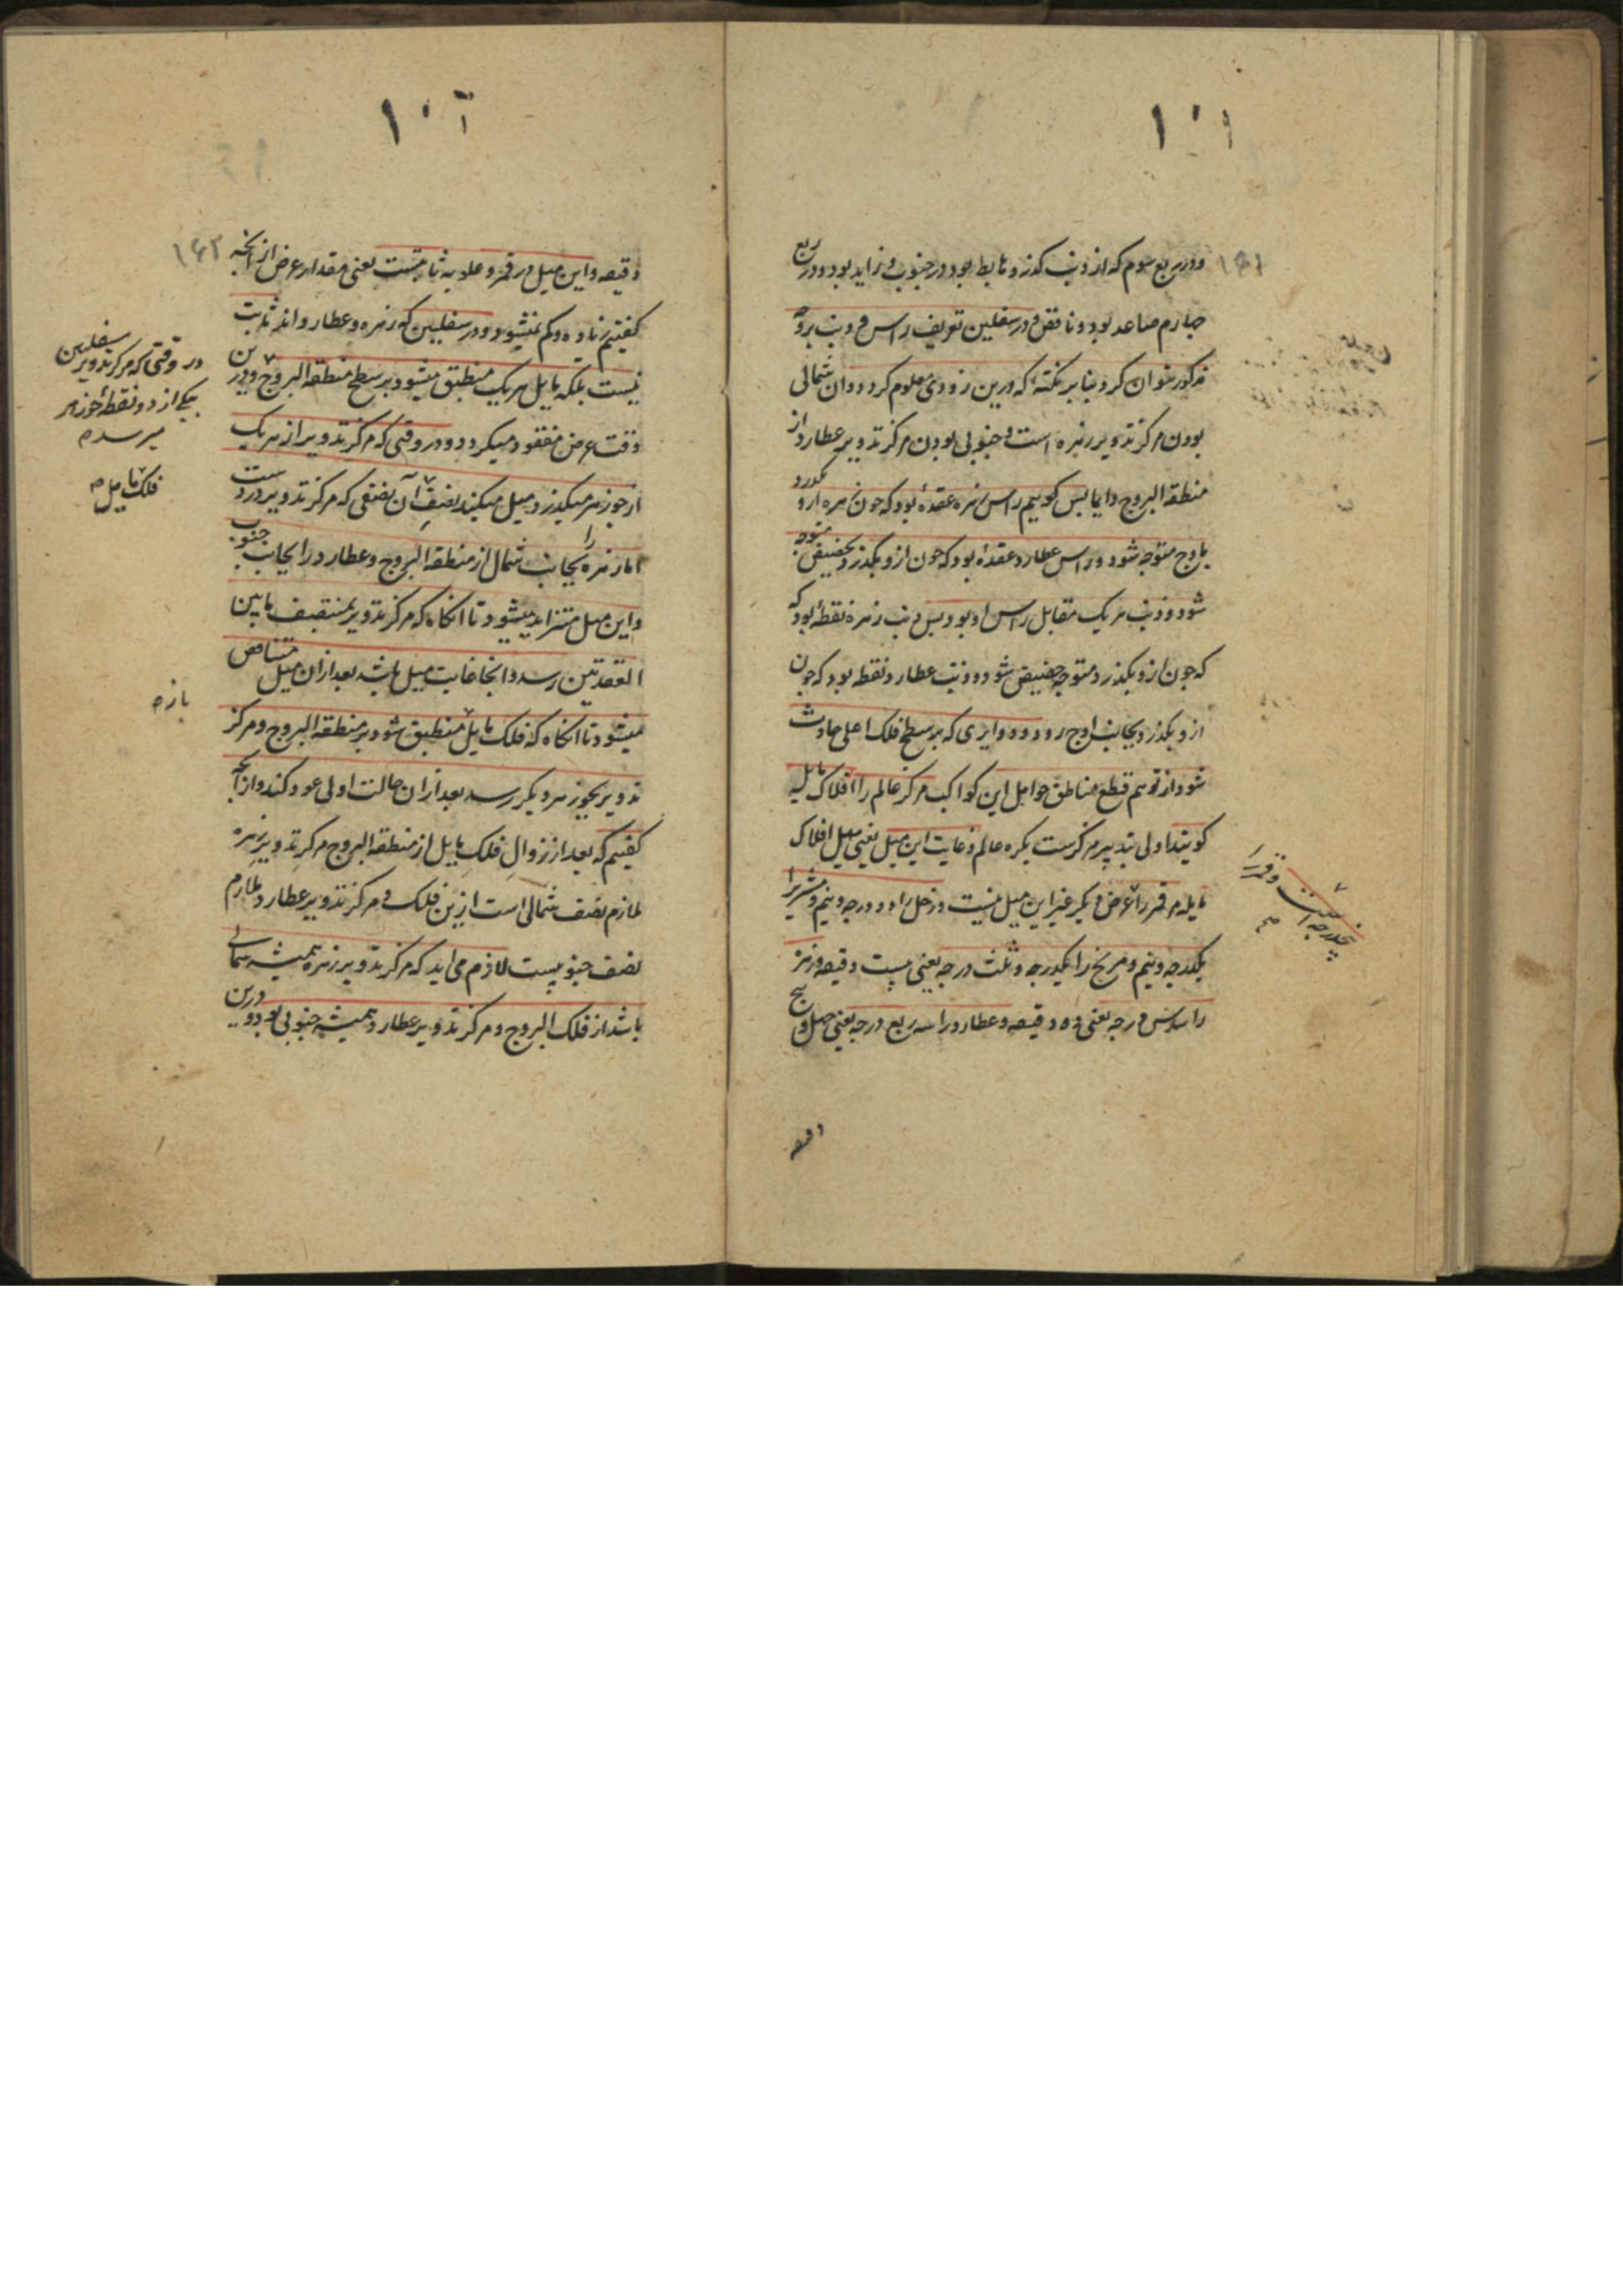 ۱۰۱
۱۶۱
ودر ربع سوم که از ذنب کذرد هابط بود و در جنوب و زاید بود و در ربع
چهارم صاعد بود و ناقص و در سفلین تعریف راس و ذنب بروجه
مذکور نتوان کرد بنا بر نکته که درین زودی معلوم کردد و ان شمالی
بودن مرکز تدویر زهره است و جنوبی بودن مرکز تدویر عطارد از
منطقه البروج دایما پس کوییم راس زهره عقدهٔ بود که چون زهره ازو بکذرد
باوج متوجه شود و راس عطارد عقدهٔ بود که چون ازو بکذرد بحضیض متوجه
شود و ذنب هر یک مقابل راس او بود پس ذنب زهره نقطهٔ بود که
که چون ازو بکذرد متوجه حضیض شود و ذنب عطارد نقطه بود که چون
ازو بکذرد بجانب اوج رود و دوایری که بر سطح فلک اعلی حادث
شود از توهم قطع مناطق حوامل این کواکب مرکز عالم را افلاک مایله
کویند اولی تدبیر مرکزست بکره عالم و غایت این میل یعنی میل افلاک
مایله مر قمر را عرض دیکر غیر این میل نیست و زحل را دو درجه و نیم و مشتریرا
یکدرجه و نیم و مریخ را یکدرجه و ثلث درجه یعنی بیست دقیقه و زهره
را سدس درجه یعنی ده دقیقه و عطارد را سه ربع درجه یعنی چهل و پنج
دقیقه
پنجدرجه است و قمر را
صح
۱۰۲
۱۶۲
دقیقه و این میل در قمر و علویه ثابتست یعنی مقدار عرض از آنچه
کفتیم زیاده و کم نمیشود و در سفلیین که زهره و عطارد اند ثابت
نیست بلکه مایل هر یک منطبق میشود بر سطح منطقه البروج و درین
وقت عرض مفقود میکردد و در وقتی که مرکز تدویر از هر یک
از جوزهر میکذرد میل میکند نصف آن نصفی که مرکز تدویر دروست
اما زهره را بجانب شمال از منطقه البروج و عطارد را بجانب جنوب
و این میل متزاید میشود تا انکاه که مرکز تدویر بمنتصف مابین
العقدتین رسد و انجا غایت میل باشد بعد ازان میل متناقص
میشود تا انکاه که فلک مایل منطبق شود بر منطقه البروج و مرکز
تدویر بجوزهر دیکر رسد بعد ازان حالت اولی عود کند و ازآنچه
کفتیم که بعد از زوال فلک مایل از منطقه البروج مرکز تدویر زهره
ملازم نصف شمالی است ازین فلک و مرکز تدویر عطارد ملازم
نصف جنوبیست لازم می اید که مرکز تدویر زهره همیشه شمالی
باشد از فلک البروج و مرکز تدویر عطارد همیشه جنوبی بود و درین
در وقتی که مرکز تدویر سفلیین
بیکی از دو نقطهٔ جوزهر
میرسد
فلک مایل
بازه